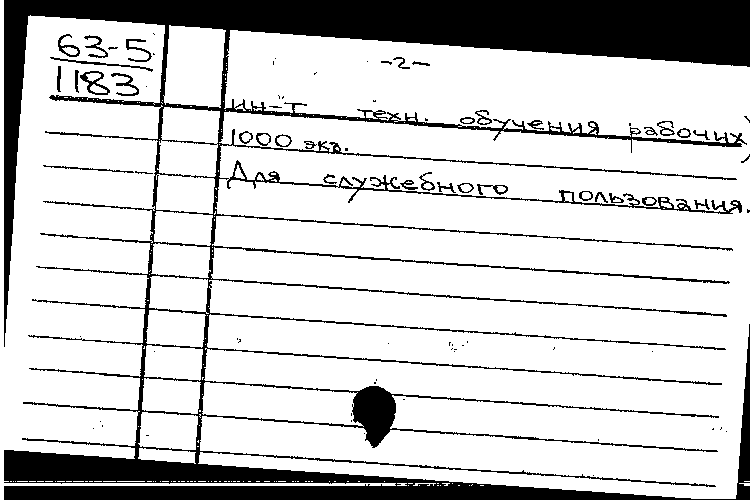 63-5
1183
-2-
ин-т техн. обучения рабочих)
1000 экз.
Для служебного пользования.